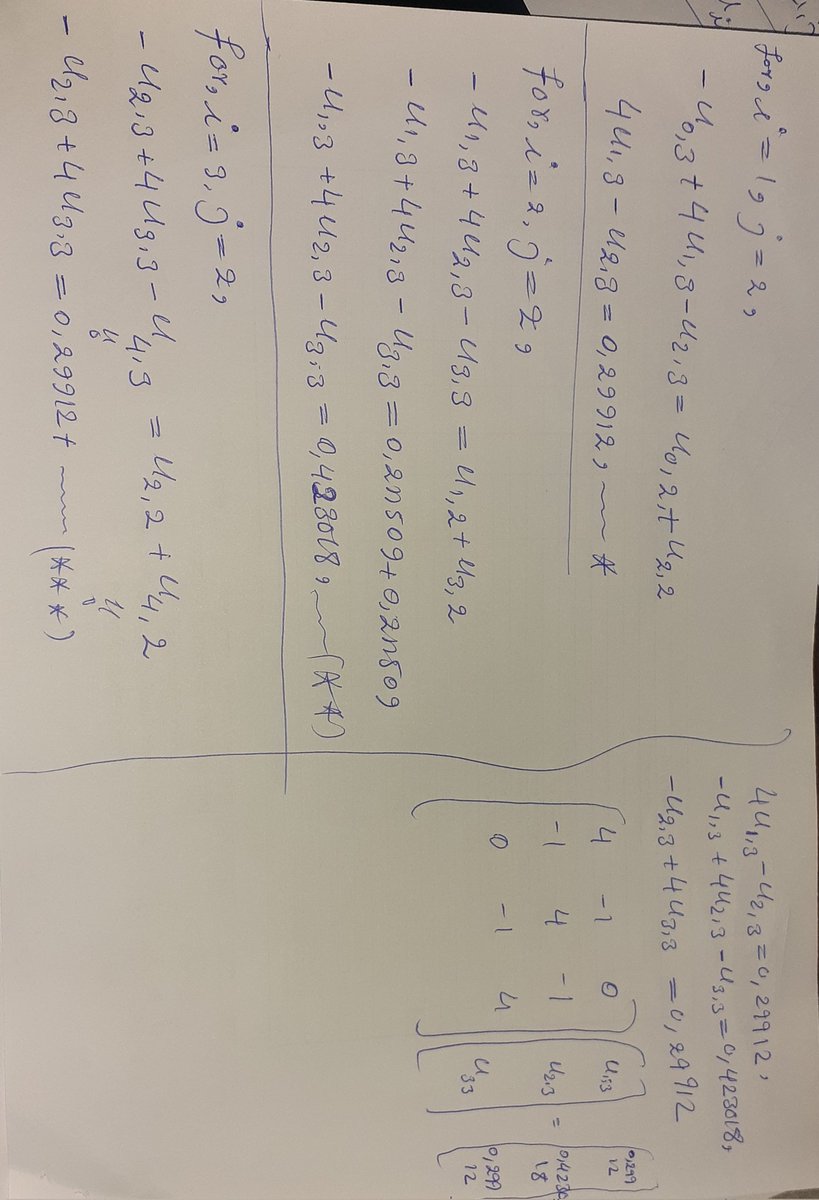 for, i = 1, j = 2,
-u0,3 + 4u1,3 - u2,3 = u0,2 + u2,2
4u1,3 - u2,3 = 0,29912, *
for, i = 2, j = 2,
-u1,3 + 4u2,3 - u3,3 = u1,2 + u3,2
-u1,3 + 4u2,3 - u3,3 = 0,2n509 + 0,2n509
-u1,3 + 4u2,3 - u3,3 = 0,423018, (**)
for, i = 3, j = 2,
-u2,3 + 4u3,3 - u4,3 = u2,2 + u4,2
-u2,3 + 4u3,3 = 0,29912 + (***)
4u1,3 - u2,3 = 0,29912,
-u1,3 + 4u2,3 - u3,3 = 0,423018,
-u2,3 + 4u3,3 = 0,29912
4 -1 0 u1,3 0,299 12
-1 4 -1 u2,3 = 18
0 -1 4 u33 0,299 12